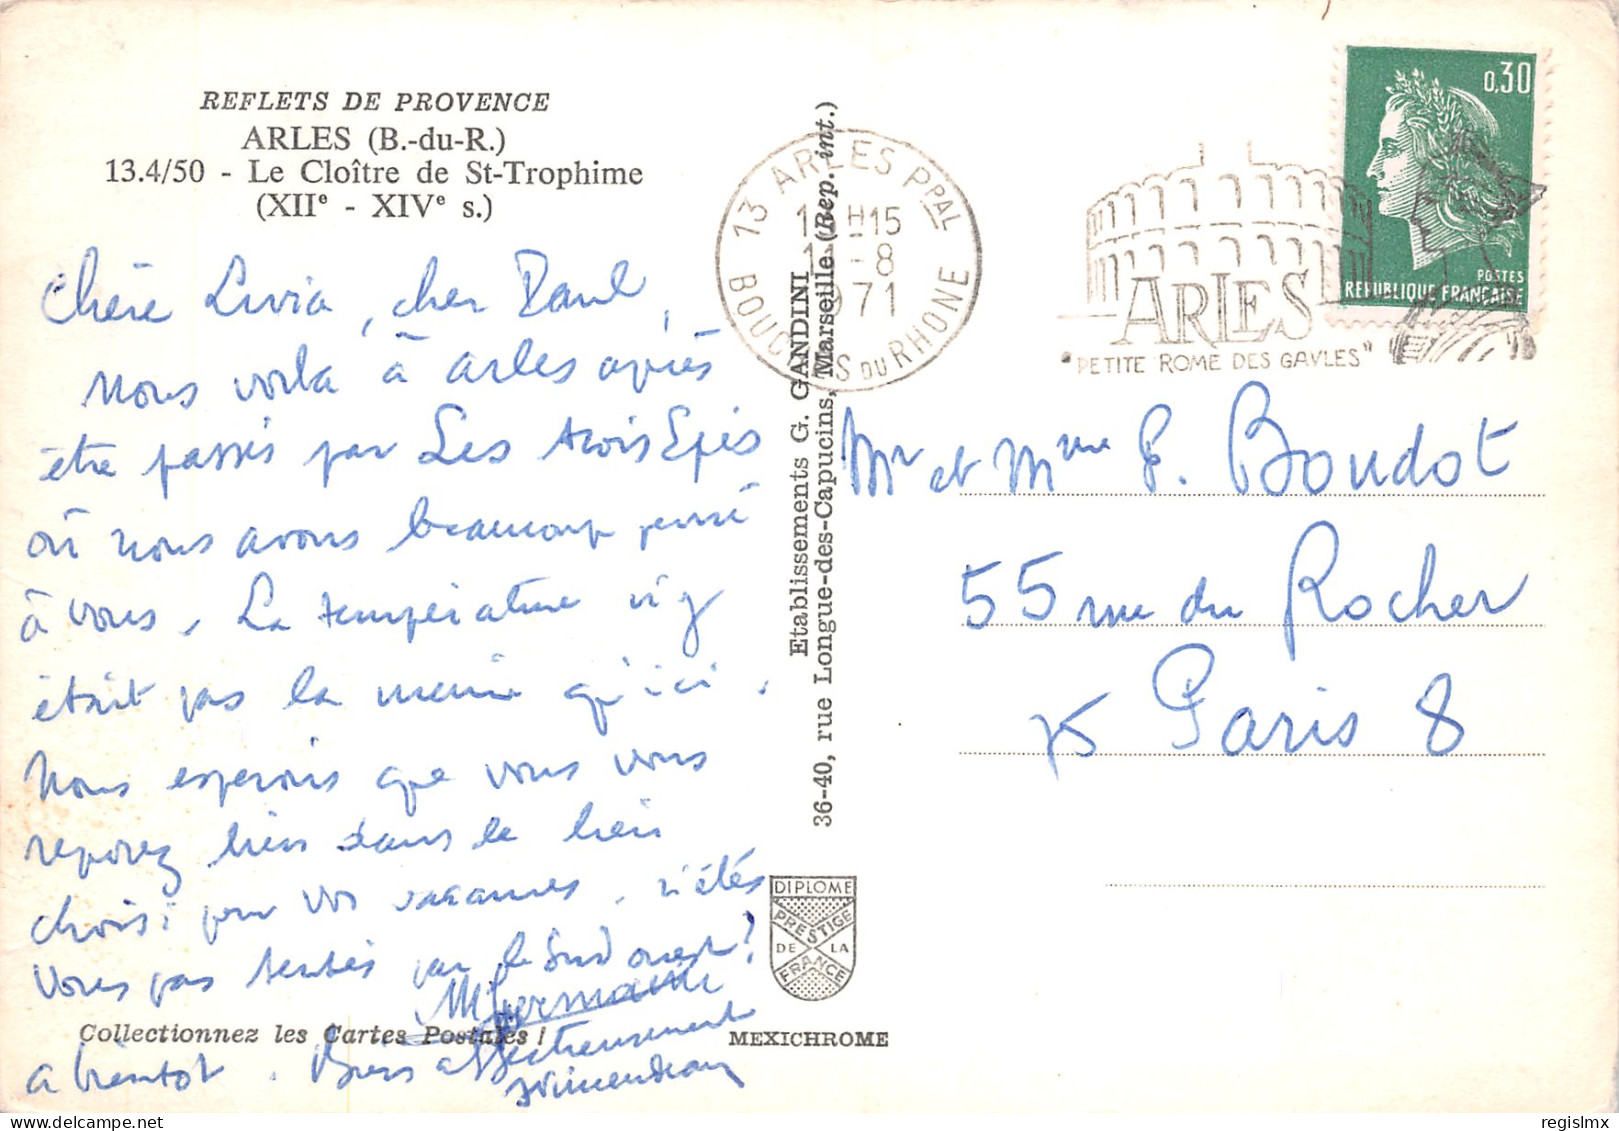 REFLETS DE PROVENCE
ARLES (B.-du-R.)
13.4/50 - Le Cloître de St-Trophime
(XIIe - XIVe s.)
Chère Livia, cher Paul,
Nous voilà à Arles après
être passés par Les trois Epis
où nous avons beaucoup pensé
à vous. La température n'y
était pas la même qu'ici.
Nous espérons que vous vous
reposez bien dans le lieu
choisi pour vos vacances. n'étés
vous pas tentés par le Sud ouest?
Collectionnez les Cartes Postales !
a bientôt. Bien affectueusement
Etablissements G. GANDINI
36-40, rue Longue-des-Capucins, Marseille (Rep. int.)
DIPLOME
PRESTIGE
DE LA
FRANCE
MEXICHROME
13 ARLES PPAL
H15
-8
1971
BOUCHES DU RHONE
ARLES
"PETITE ROME DES GAVLES"
0,30
POSTES
REPUBLIQUE FRANÇAISE
Mr et Mme P. Boudot
55 rue du Rocher
75 Paris 8
regislmx
delcampe.net